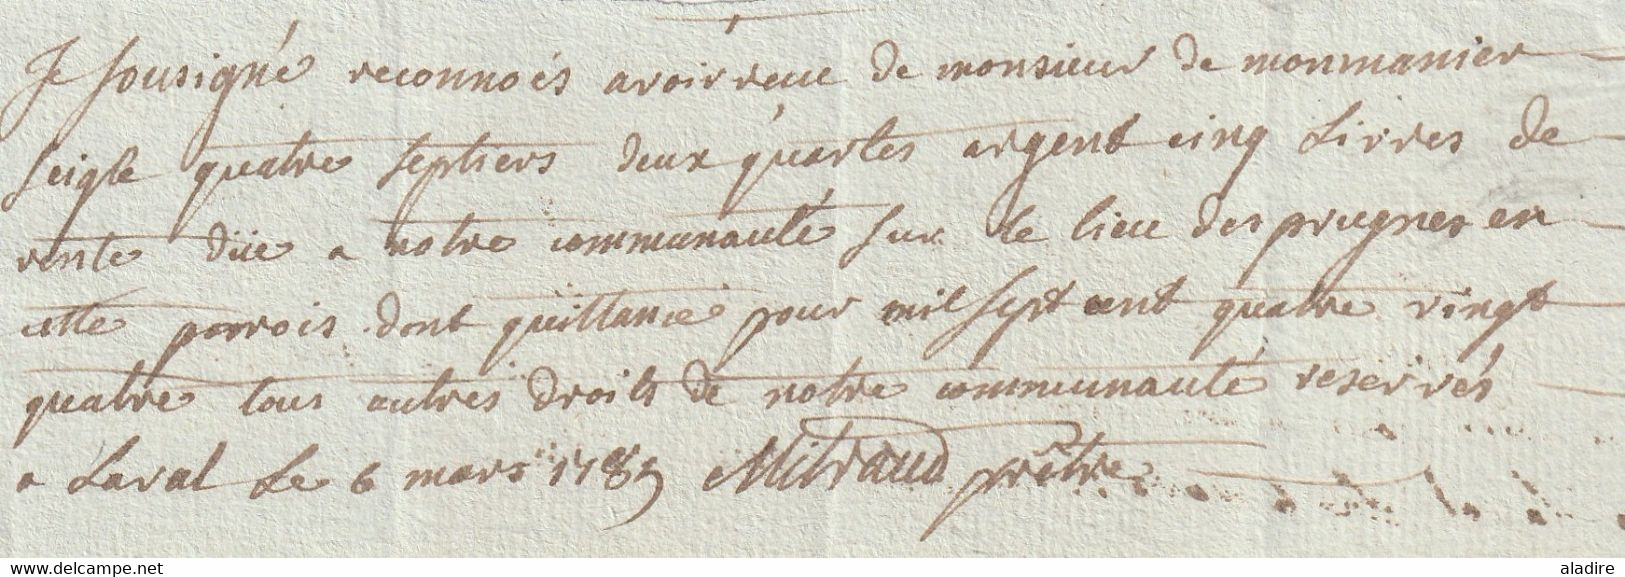 Je sousigné reconnoés avoir reue de monsieur de monmanier
seigle quatre septiers deux quartes argent cinq Livres de
rente düe a notre communauté sur le lieu des prugnes en
cette parrois dont quittance pour mil sept cent quatre vingt
quatre tous autres droits de notre communauté reservés
a Laval Le 6 mars 1785 Mitraud prêtre
www.delcampe.net
aladire